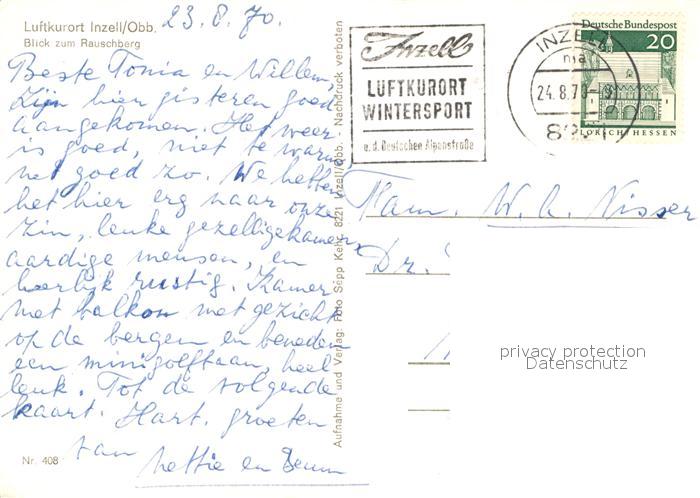 Luftkurort Inzell/Obb.
Blick zum Rauschberg
23.8.70.
Beste Tonia en Willem,
Zijn hier gisteren goed
aangekomen. Het weer
is goed, niet te warm,
net goed zo. We hebben
het hier erg naar onze
zin, leuke gezellige kamer,
aardige mensen, en
heerlijk rustig. Kamer
met balkon met gezicht
op de bergen en beneden
een minigolfbaan, heel
leuk. Tot de volgende
kaart. Hart. groeten
van
Nettie en
Nr. 408
Aufnahme und Verlag: Foto Sepp Kehr, 8221 Inzell/Obb. Nachdruck verboten
Inzell
LUFTKURORT
WINTERSPORT
a. d. Deutschen Alpenstraße
INZELL
24.8.70
Deutsche Bundespost
20
LORSCH/HESSEN
Fam. W. A. Visser
Dr.
privacy protection
Datenschutz